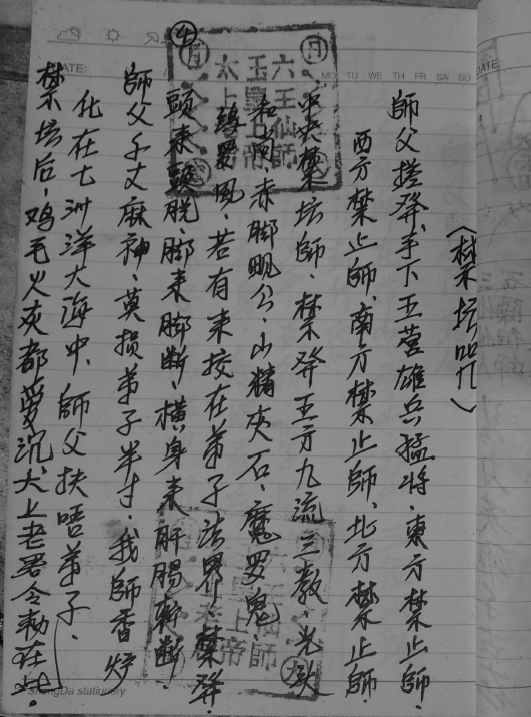 〈禁坛咒〉
師父搓發、手下五营雄兵猛将、東方禁止師.
西方禁止師、南方禁止師、北方禁止師.
中央禁坛師、禁發五方九流三教、光头
和尚、赤脚觋公、山精灰石、魔罗鬼、
罗風、若有来挍在弟子法界禁發、
頭来頭脱、脚来脚断、横身来肝腸斬断.
師父子丈麻神、莫損弟子半寸、我師香炉
化在七洲洋大海中、師父扶唔弟子、
禁坛后、鸡毛火灰都要沉、太上老君令勑在此.
④
日
月
六壬仙師
玉皇上帝
太上老君
DATE:
MO TU WE TH FR SA SU
DATE
ShengDa stationery